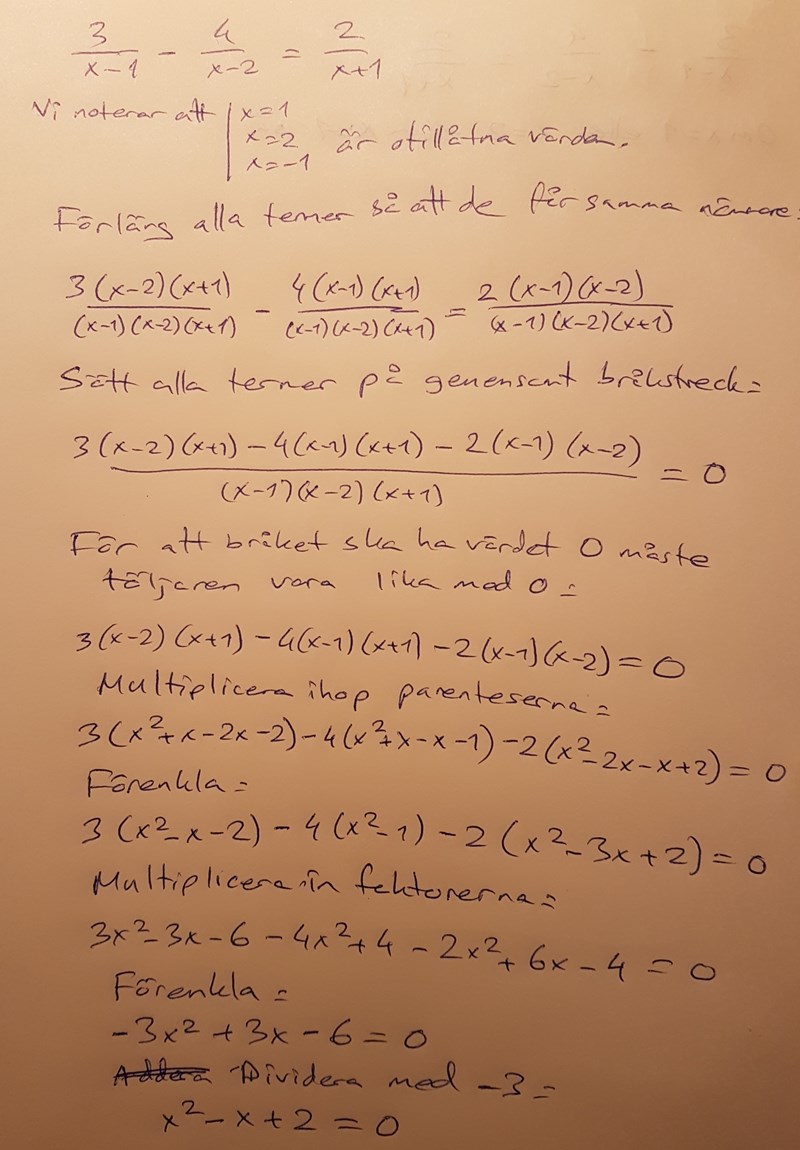 3/(x-1) - 4/(x-2) = 2/(x+1)
Vi noterar att | x=1 x=2 x=-1 är otillåtna värden.
Förläng alla termer så att de får samma nämnare:
3(x-2)(x+1)/((x-1)(x-2)(x+1)) - 4(x-1)(x+1)/((x-1)(x-2)(x+1)) = 2(x-1)(x-2)/((x-1)(x-2)(x+1))
Sätt alla termer på gemensamt bråkstreck:
(3(x-2)(x+1) - 4(x-1)(x+1) - 2(x-1)(x-2))/((x-1)(x-2)(x+1)) = 0
För att bråket ska ha värdet 0 måste
täljaren vara lika med 0:
3(x-2)(x+1) - 4(x-1)(x+1) - 2(x-1)(x-2) = 0
Multiplicera ihop parenteserna:
3(x²+x-2x-2) - 4(x²+x-x-1) - 2(x²-2x-x+2) = 0
Förenkla:
3(x²-x-2) - 4(x²-1) - 2(x²-3x+2) = 0
Multiplicera in faktorerna:
3x²-3x-6 - 4x²+4 - 2x²+6x-4 = 0
Förenkla:
-3x²+3x-6 = 0
Addera Dividera med -3:
x²-x+2 = 0